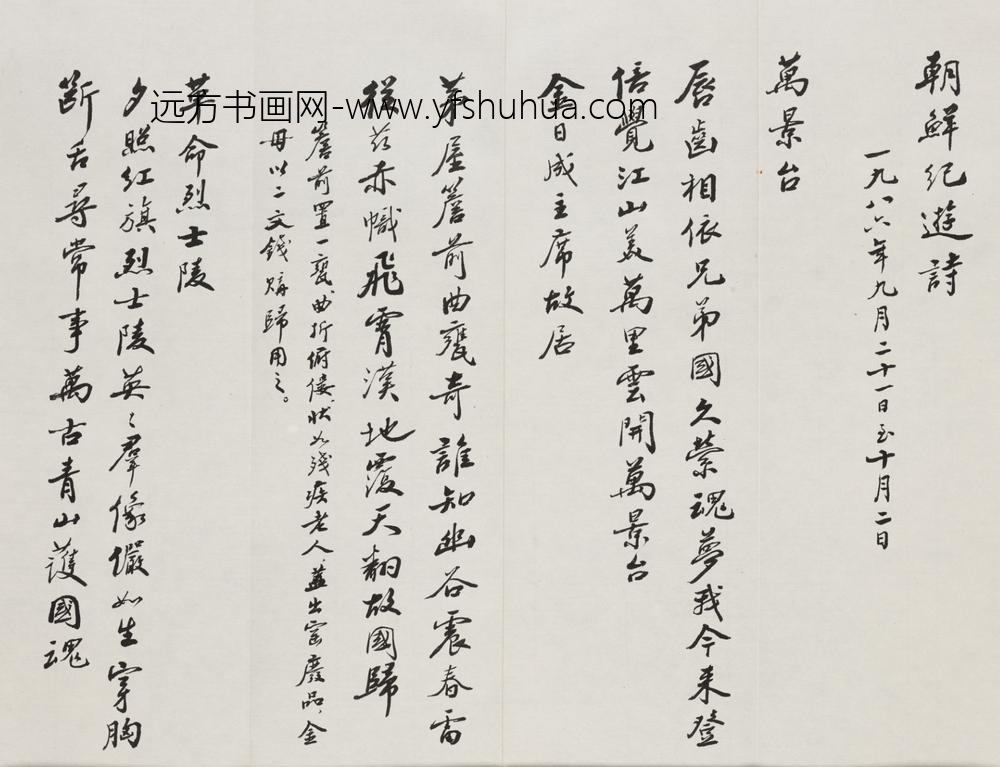 朝鮮紀遊詩
一九八六年九月二十一日至十月二日
萬景台
唇齒相依兄弟國久縈魂夢我今来登
倍覺江山美萬里雲開萬景台
金日成主席故居
茅屋簷前曲甕奇誰知幽谷震春雷
從茲赤幟飛霄漢地覆天翻故國歸
簷前置一甕,曲折俯僂,狀如殘疾老人,蓋出窑廢品,金
母以二文錢購歸用之。
革命烈士陵
夕照紅旗烈士陵英々羣像儼如生穿胸
斷舌尋常事萬古青山護國魂
远方书画网-www.yfshuhua.com